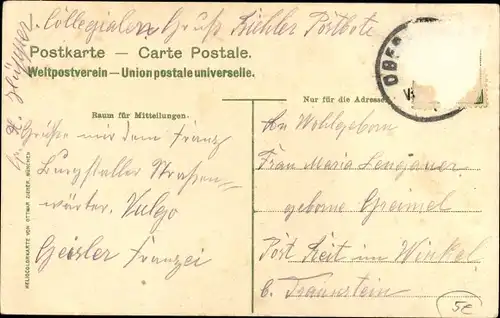 Collegialen Gruß Bichler Postbote
Postkarte — Carte Postale.
Weltpostverein — Union postale universelle.
Nur für die Adresse
Raum für Mitteilungen.
Grüße mir dem Franz
Burgstaller Straßen=
wärter. Vulgo
Geisler Franzei
An Wohlgeborn
Frau Maria Lengauer
geborne Greimel
Post Reit im Winkel
b. Traunstein
HELIOCOLORKARTE VON OTTMAR ZIEHER, MÜNCHEN
OBER
5€